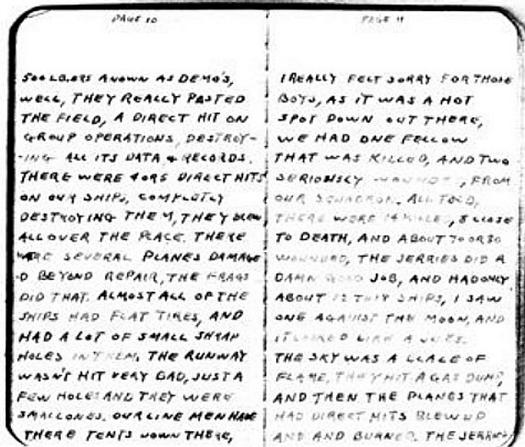 PAGE 10
500 LBERS KNOWN AS DEMO'S,
WELL, THEY REALLY PASTED
THE FIELD, A DIRECT HIT ON
GROUP OPERATIONS, DESTROY-
-ING ALL ITS DATA & RECORDS.
THERE WERE 4 OR 5 DIRECT HITS
ON OUR SHIPS, COMPLETLY
DESTROYING THEM, THEY BLEW
ALL OVER THE PLACE. THERE
WERE SEVERAL PLANES DAMAGE
D BEYOND REPAIR, THE FRAGS
DID THAT. ALMOST ALL OF THE
SHIPS HAD FLAT TIRES, AND
HAD A LOT OF SMALL SHRAP
HOLES IN THEM, THE RUNWAY
WASN'T HIT VERY BAD, JUST A
FEW HOLES AND THEY WERE
SMALL ONES. OUR LINE MEN HAVE
THERE TENTS DOWN THERE,
PAGE 11
I REALLY FELT SORRY FOR THOSE
BOYS, AS IT WAS A HOT
SPOT DOWN OUT THERE,
WE HAD ONE FELLOW
THAT WAS KILLED, AND TWO
SERIOUSLY WOUNDED, FROM
OUR SQUADRON. ALL TOLD,
THERE WERE 14 KILLED, 8 CLOSE
TO DEATH, AND ABOUT 70 OR 80
WOUNDED, THE JERRIES DID A
DAMN GOOD JOB, AND HAD ONLY
ABOUT 12 SHIPS, I SAW
ONE AGAINST THE MOON, AND
IT LOOKED LIKE A
THE SKY WAS A OF
FLAME, THEY HIT A GAS DUMP,
AND THEN THE PLANES THAT
HAD DIRECT HITS BLEW UP
AND AND BURNED. THE JERRIES